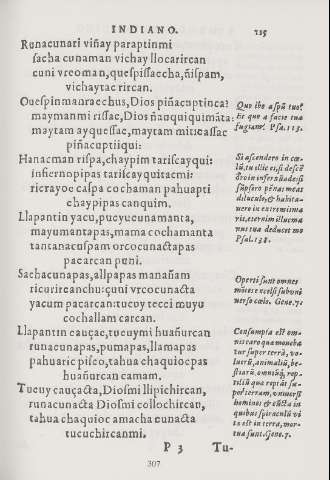 INDIANO.
115
Runacunari viñay paraptinmi
sacha cunaman vichay llocarircan
cuni vrcoman, quespissaccha, ñispam,
vichaytac rircan.
Quespinmanraechus, Dios piñacuptinca?
maymanmi rissac, Dios ñauquiquimãta:
maytam ayquessac, maytam miticassac
piñacuptiiqui:
Hanacman rispa, chaypim tariscayqui:
infiernopipas tariscayquitacmi:
ricrayoc caspa cochaman pahuapti
chaypipas canquim.
Llapantin yacu, pucyucunamanta,
mayumantapas, mama cochamanta
tantanacuspam orcocunactapas
pacarcan puni.
Sachacunapas, allpapas manañam
ricurircanchu: çuni vrcocunacta
yacum pacarcan: tucuy teccimuyu
cochallam carcan.
Llapantin cauçac, tucuymi huañurcan
runacunapas, pumapas, llamapas
pahuaric pisco, tahua chaquiocpas
huañurcan camam.
Tucuy cauçacta, Diosmi llipichircan,
runacunacta Diosmi collochircan,
tahua chaquioc amacha cunacta
tucuchircanmi.
Quo ibo à spũ tuo?
Et quo a facie tua
fugiam? Psa. 113.
Si ascendero in cœ-
lũ, tu illic es, si descẽ
dero in infernũ ades: si
sũpsero pẽnas meas
diluculo, & habita-
uero in extremis ma
ris, etenim illuc ma
nus tua deducet me
Psal. 138.
Operti sunt omnes
mõtes excelsi sub vni
uerso cœlo. Gene. 7.
Consumpta est om-
nis caro quæ moueba
tur super terrã, vo-
lucrũ, animaliũ, be-
stiarũ, omniũq; rep-
tiliũ quæ reptãt su-
per terram, vniuersi
homines & cũcta in
quibus spiraculũ vi
tæ est in terra, mor-
tua sunt. Gene. 7.
P 3 Tu-
307